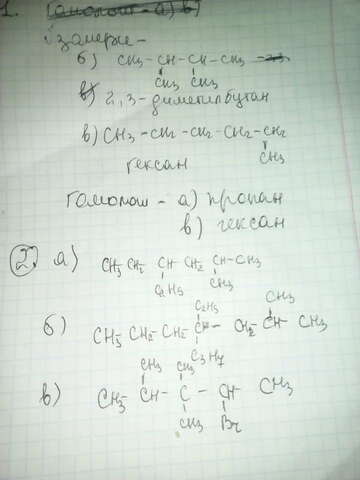 1. Гомологи - а) в)
изомеры -
б) CH3-CH-CH-CH3
CH3 CH3
2,3-диметилбутан
в) CH3-CH2-CH2-CH2-CH2
CH3
гексан
гомологи - а) пропан
в) гексан
2. а) CH3 CH2 CH CH2 CH-CH3
C2H5 CH3
C2H5 CH3
б) CH3-CH2-CH2-CH-CH2-CH-CH3
C3H7
CH3 CH3
в) CH3-CH-C-CH CH3
CH3 Br